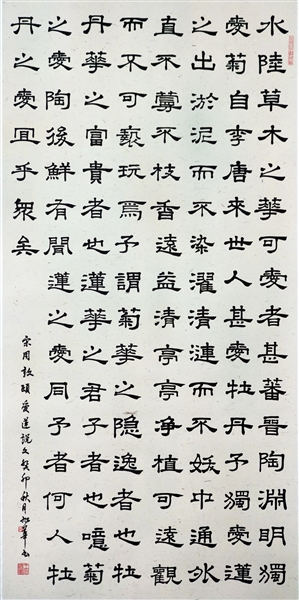 水陸草木之華可愛者甚蕃晉陶淵明獨
愛菊自李唐来世人甚愛牡丹予獨愛蓮
之出淤泥而不染濯清漣而不妖中通外
直不蔓不枝香遠益清亭亭净植可遠觀
而不可褻玩焉予謂菊華之隐逸者也牡
丹華之富貴者也蓮華之君子者也噫菊
之愛陶後鮮有聞蓮之愛同予者何人牡
丹之愛宜乎衆矣
宋周敦頤爱蓮説文癸卯秋月華书